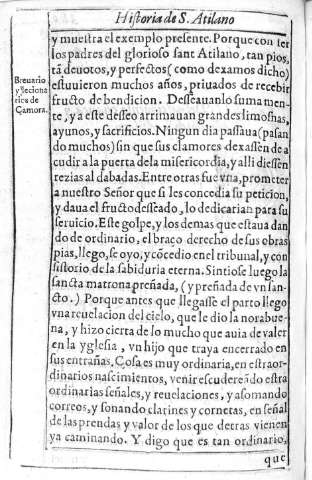 Historia de S. Atilano
y muestra el exemplo presente. Porque con ser
los padres del glorioso sant Atilano, tan pios,
tã deuotos, y perfectos (como dexamos dicho)
Breuario
y leciona
rios de
Çamora.
estuuieron muchos años, priuados de recebir
fructo de bendicion. Desseauanlo suma men-
te, y a este desseo arrimauan grandes limosnas,
ayunos, y sacrificios. Ningun dia passaua (pasan
do muchos) sin que sus clamores dexassẽn de a
cudir a la puerta de la misericordia, y alli diessen
rezias aldabadas. Entre otras fue vna, prometer
a nuestro Señor que si les concedia su peticion,
y daua el fructo desseado, lo dedicarian para su
seruicio. Este golpe, y los demas que estaua dan
do de ordinario, el braço derecho de sus obras
pias, llego, se oyo, y cõcedio en el tribunal, y con
sistorio de la sabiduria eterna. Sintiose luego la
sancta matrona preñada, (y preñada de vn san-
cto.) Porque antes que llegasse el parto llego
vna reuelacion del cielo, que le dio la norabue-
na, y hizo cierta de lo mucho que auia de valer
en la yglesia, vn hijo que traya encerrado en
sus entrañas. Cosa es muy ordinaria, en estraor-
dinarios nascimientos, venir escudereãdo estra
ordinarias señales, y reuelaciones, y asomando
correos, y sonando clarines y cornetas, en señal
de las prendas y valor de los que detras vienen
ya caminando. Y digo que es tan ordinario,
que